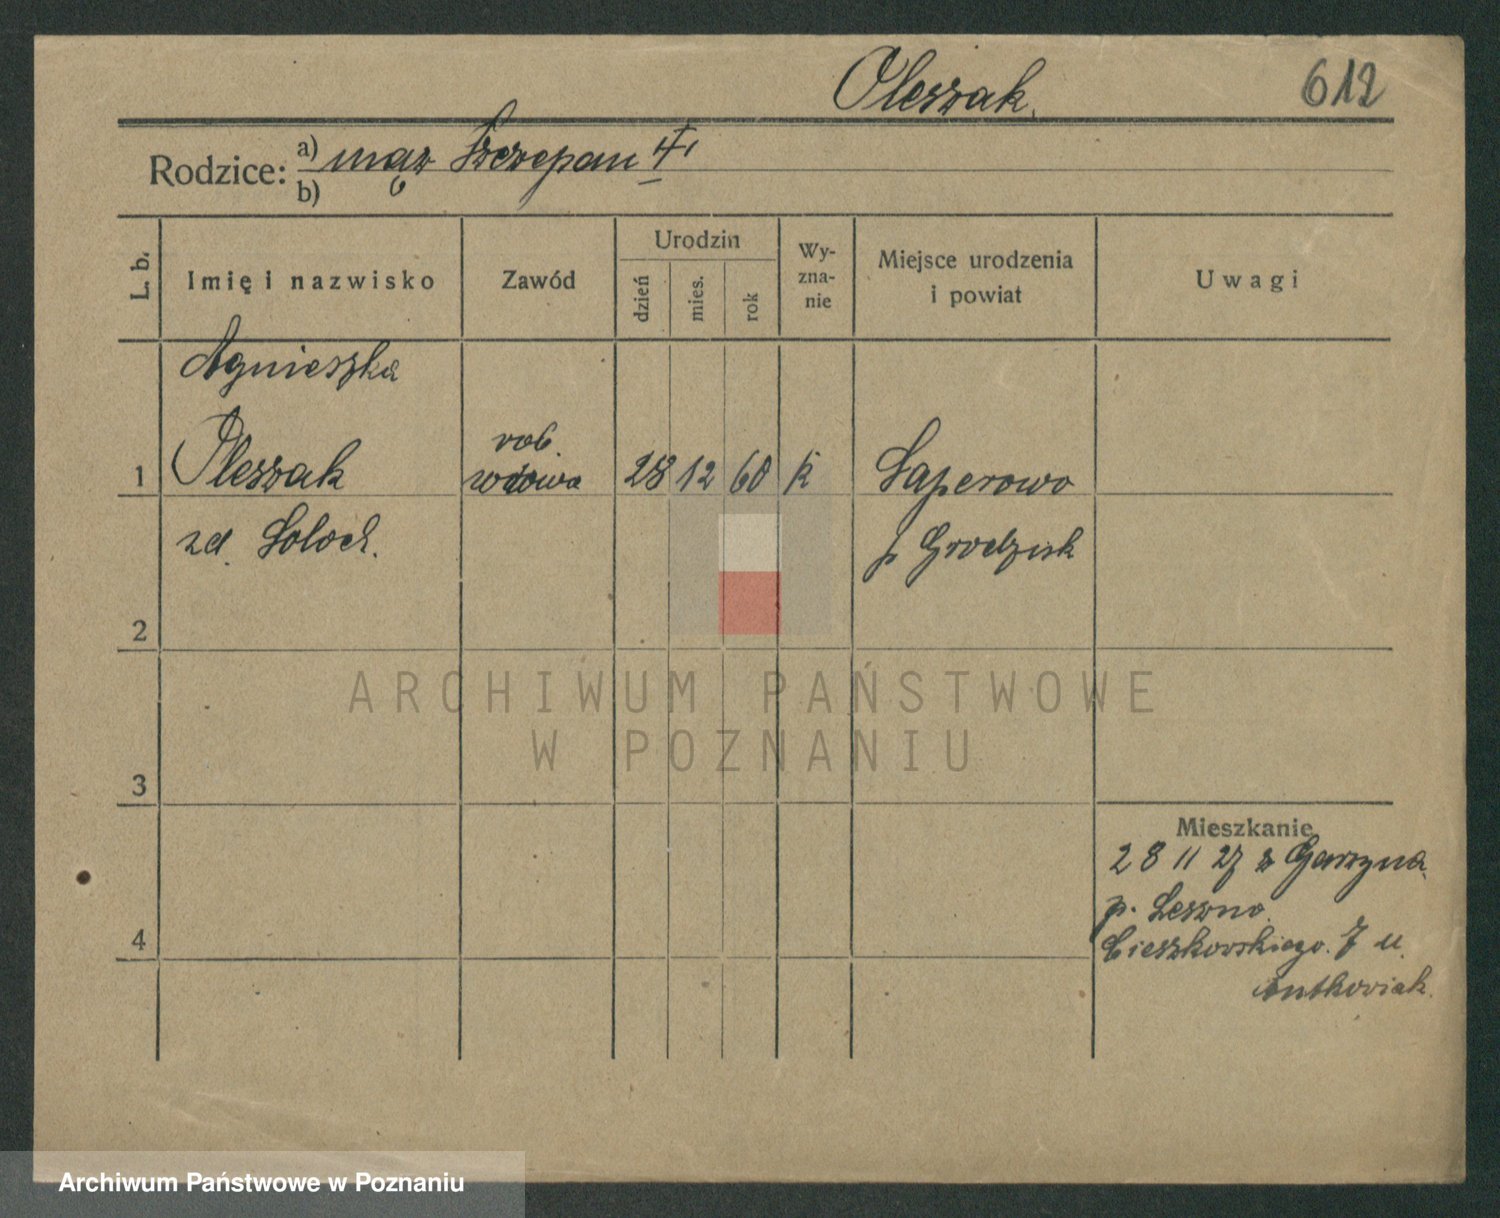 Oleszak.
612
Rodzice: a) mąż Szczepan
b)
L. b.
Imię i nazwisko
Zawód
Urodzin
dzień
mies.
rok
Wy-
zna-
nie
Miejsce urodzenia
i powiat
Uwagi
Agnieszka
1 Oleszak
rob.
wdowa
28 12 60 k
Saperowo
zd. Soloch.
p Grodzisk
2
3
4
Mieszkanie
28 11 27 z Garzyna
p. Leszno.
Cieszkowskiego. 7 u.
Antkowiak.
ARCHIWUM PAŃSTWOWE
W POZNANIU
Archiwum Państwowe w Poznaniu